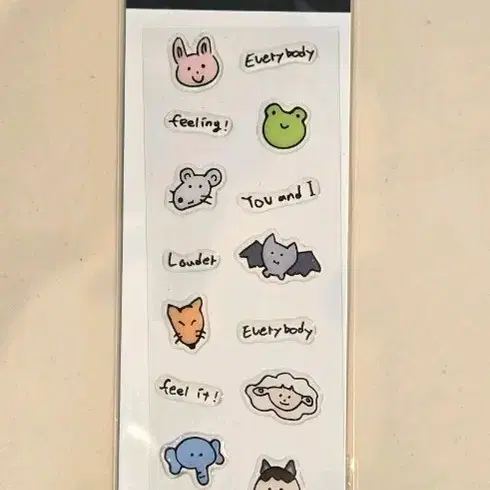 Everybody
feeling!
You and I
Louder
Everybody
feel it!